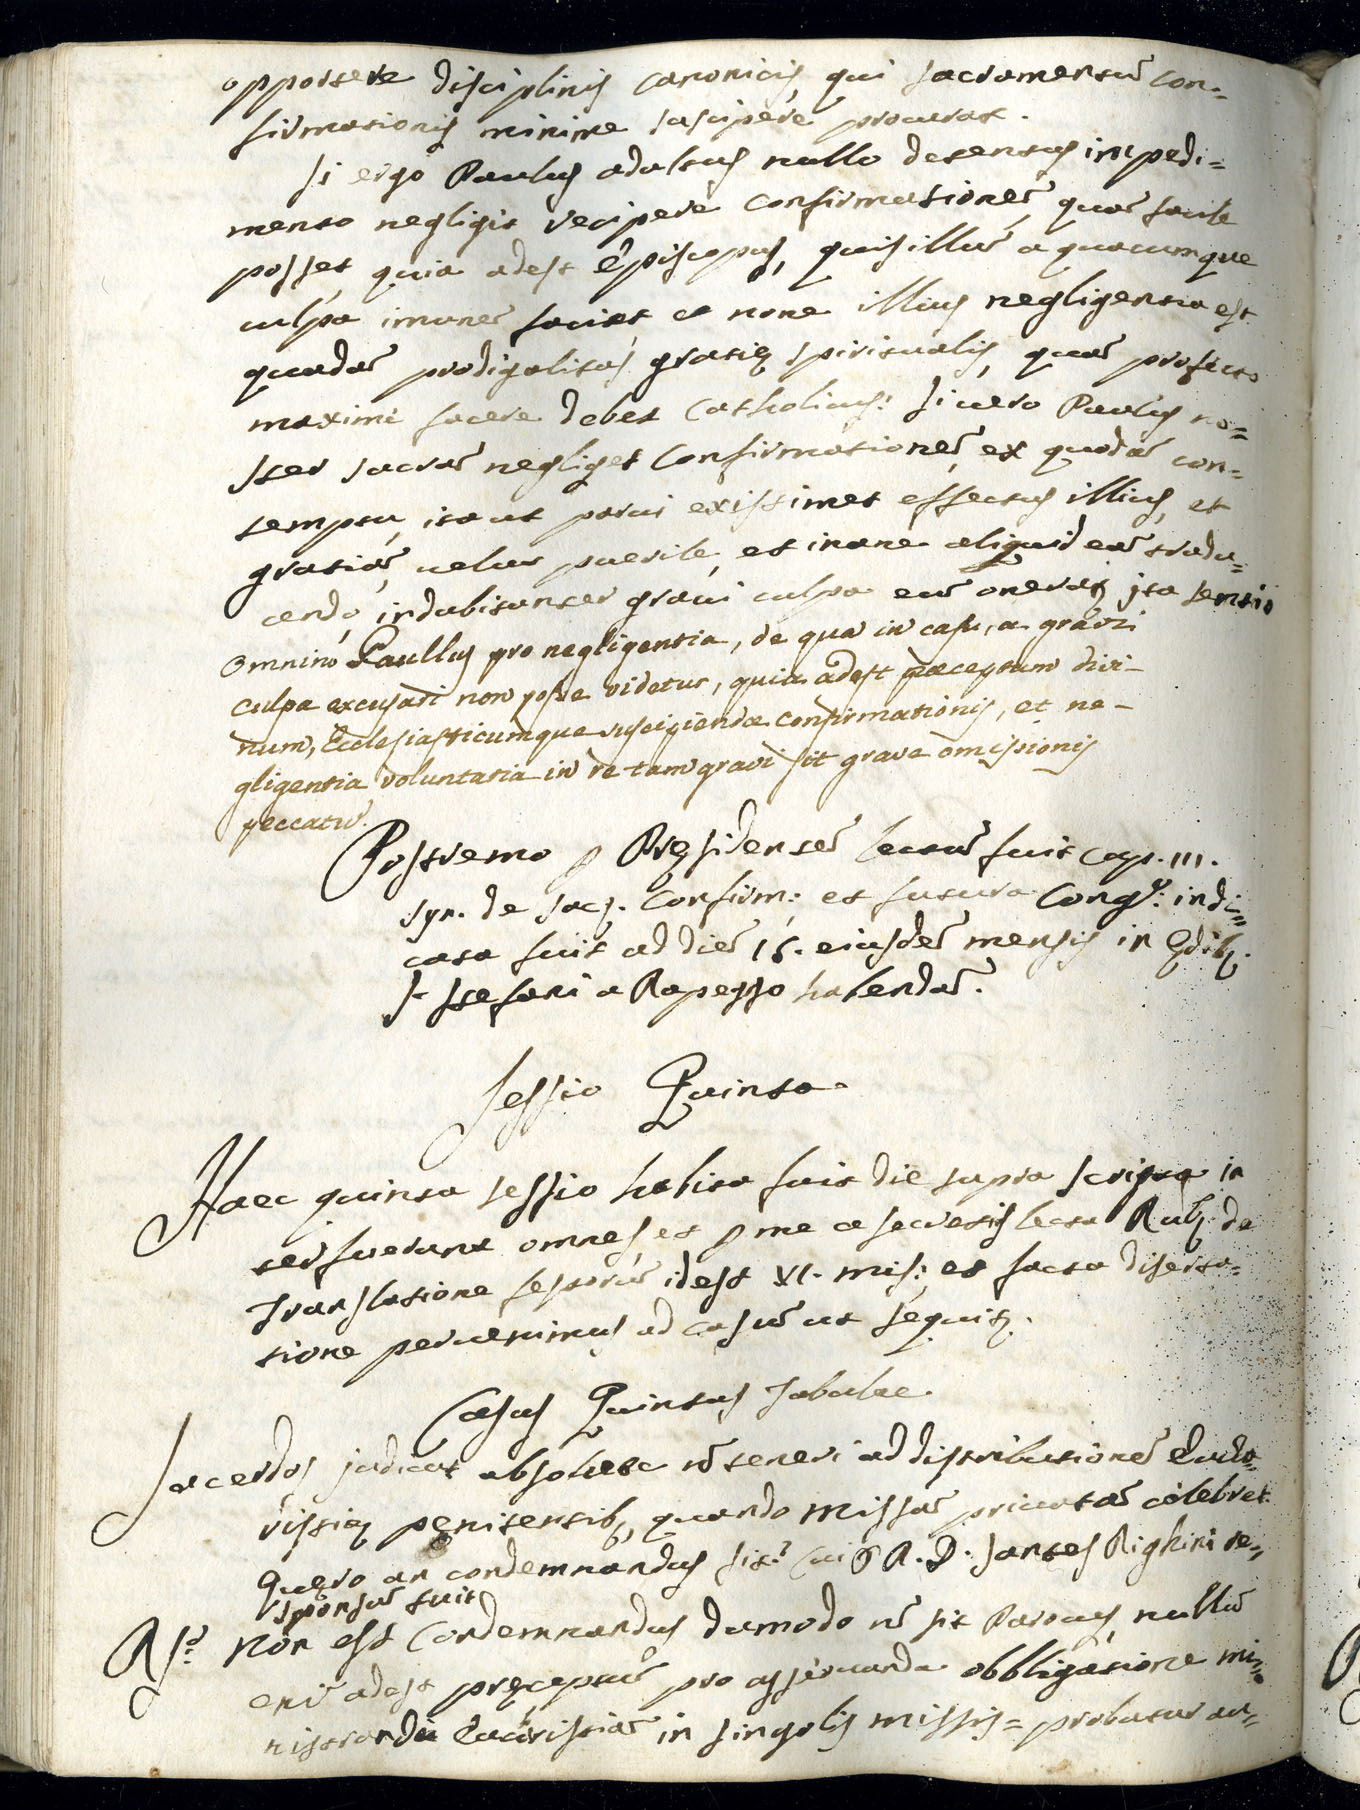 opponere disciplinis canonicis, qui sacramentũ con-
firmationis minime suscipere procurat.
Si ergo Paulus adultus nullo detentus impedi=
mento negligit recipere confirmationẽ, quã facile
posset, quia adest Episcopus, quis illũ a quacumque
culpa imunẽ faciet et none illius negligentia est
quadã prodigalitas gratię spiritualis, quã profecto
maximi facere debet Catholicus: Si uero Paulus no=
ster sacrã negligit Confirmationẽ, ex quodã con=
temptu, ita ut parui existimet effectus illius, et
gratiã, uelut puerile, et inane aliquid eã tradu=
cendo, indubitanter graui culpa eũ onerat, ita sentio
Omninò Paullus pro negligentia, de qua in casu, a gravi
culpa excusari non posse videtur, quia adest præceptum divi-
num, Ecclesiasticumque suscipiendæ confirmationis, et ne-
gligentia voluntaria in re tam gravi sit grave omissionis
peccatũ.
Postremo p Pręsidentẽ lectũ fuit cap. III.
syn. de sac. Confirm: et futura Cong: indi=
cata fuit ad diẽ 15. eiusdẽ mensis in Ędib.
S. Stefani a Rapezzo habendã.
Sessio Quinta
Haec quinta sessio habita fuit die supra scripta in
ter fuerunt omnes, et p me a secretis lecta Rub. de
Translatione festorũ, idest VI. mis: et facta diserta=
tione peruenimus ad casũ ut sequit.
Casus Quintus Tabulae
Sacerdos judicat absolute nõ teneri ad distributionẽ Eucha=
ristię penitentib, quando Missã priuatã celebret.
Quęro an condemnandus sit? Cui R. D. Santes Righini re=
sponsũ fuit
Rs? Non est Condemnandus dumodo nõ sit Parocus, nullũ
enĩ adest pręceptũ pro asseruanda obbligatione mi=
nistrandi Eucaristiã in singolis missis = probatur au=